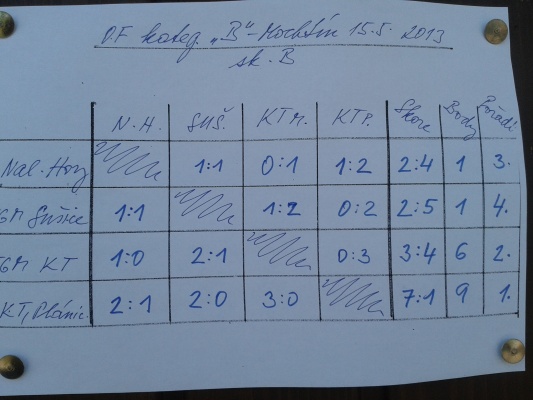 O.F kateg. „B“ - Mochtín 15.5. 2013
sk. B
N.H. SUŠ. KTM. KTP. Skore Body Pořadí
Nal. Hory 1:1 0:1 1:2 2:4 1 3.
GM Sušice 1:1 1:2 0:2 2:5 1 4.
GM KT 1:0 2:1 0:3 3:4 6 2.
KT, Plánic. 2:1 2:0 3:0 7:1 9 1.